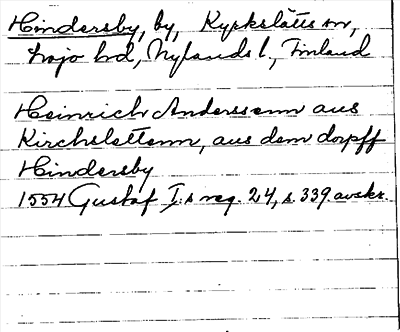 Hindersby, by, Kyrkslätts sn,
Lojo hd, Nylands l., Finland
Heinrich Anderssenn aus
Kirchslettenn, aus dem dorpff
Hindersby
1554 Gustaf I:s reg. 24, s. 339 avskr.